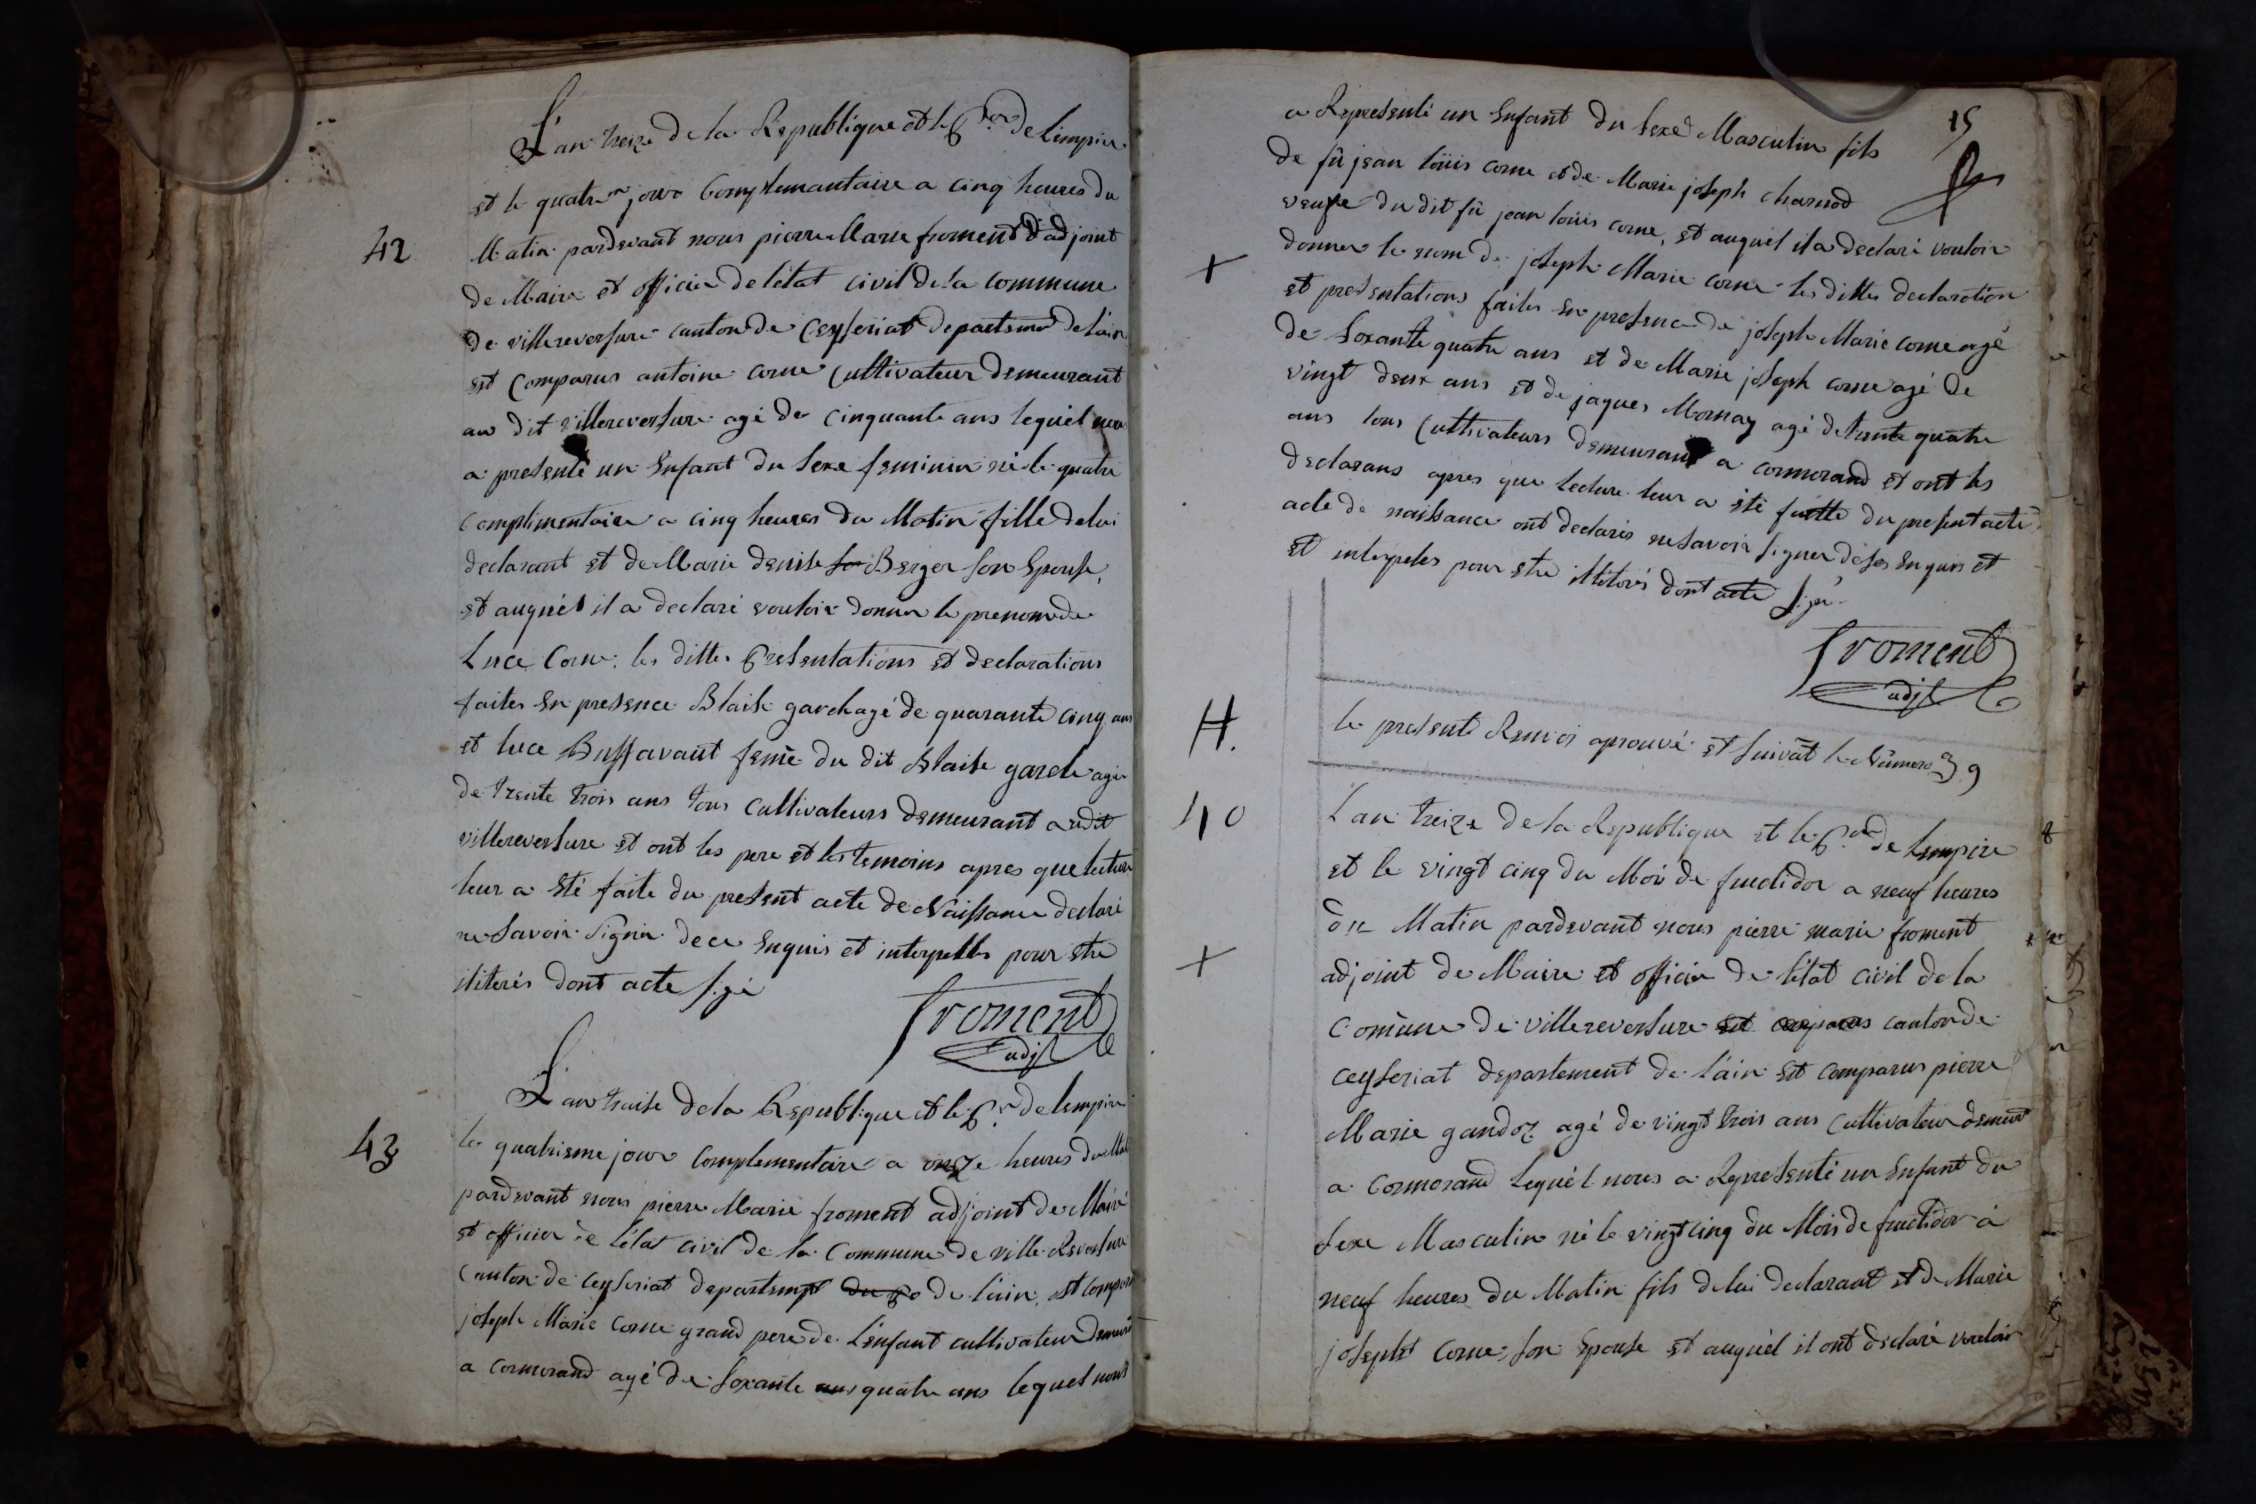 42
L'an treize de la Republique et le per. de Lempire
et le quatrem jour Complemantaire a cinq heures du
Matin pardevant nous pierre Marie froment adjoint
de Maire et officier de létat civil de la commune
de villereversure canton de Ceyseriat departemt de lain
est Comparus antoine corne Cultivateur demeurant
au dit villereversure agé de cinquante ans lequel nous
a presenté un Enfant du sexe feminin né le quatre
complimentaire a cinq heures du Matin fille de lui
declarant et de Marie denise Berger son Epouse,
et auquel il a declaré vouloir donner le prenom de
Luce Corne. les dittes presentations et declarations
faites En presence Blaise garch agé de quarante cinq ans
et luce Buffavant feme du dit Blaise garch agé
de trente trois ans tous cultivateurs demeurant audit
villereversure et ont les pere et les temoins apres que lecture
leur a Eté faite du present acte de Naissance declaré
ne Savoir Signer de ce Enquis et interpellés pour etre
iliterés dont acte s.gé
froment
adjt
43
L'an traise de la Republique et le per. de lempire
le quatrieme jour complementaire a onze heures du Mat
pardevant nous pierre Marie froment adjoint de Maire
et officier de l'état civil de la Commune de ville Reversure
canton de ceyseriat departempt de lain, est compar
joseph Marie Corne grand pere de L'enfant cultivateur demeurt
a cormorand agé de soxante ans quatre ans lequel nous
15
a Representé un Enfant du sexe Masculin fils
de fû jean loüis corne et de Marie joseph charnod
veufve du dit fû jean loüis corne, et auquel il a declaré vouloir
donner le nom de joseph Marie corne les dittes declaration
+
et presentations faites En presence de joseph Marie corne agé
de soxante quatre ans et de Marie joseph corne agé de
vingt deux ans et de jaques Mornay agé de trente quatre
ans tous Cultivateurs demeurant a cormorand et ont les
declarans apres que lecture leur a été faitte du present acte
acte de naissance ont declarés ne savoir signer de ses Enquis et
et interpeles pour etre illiterés dont acte s.gé
froment
adjt
H.
le presente Renvoi aprouvé et suivat le Numero 39
40
L'an treize de la Republique et le per. de Lempire
et le vingt cinq du Mois de fructidor a neuf heures
du Matin pardevant nous pierre marie froment
+
adjoint de Maire et officier de l'état civil de la
Comune de villereversure est comparus canton de
ceyseriat departement de lain est comparus pierre
Marie gandoz agé de vingt trois ans Cultivateur demeurt
a cormorand Lequel nous a Representé un Enfant du
sexe Masculin né le vingt cinq du Mois de fructidor a
neuf heures du Matin fils de lui declarant et de Marie
josepht Corne, son Epouse et auquel il ont declaré vouloir